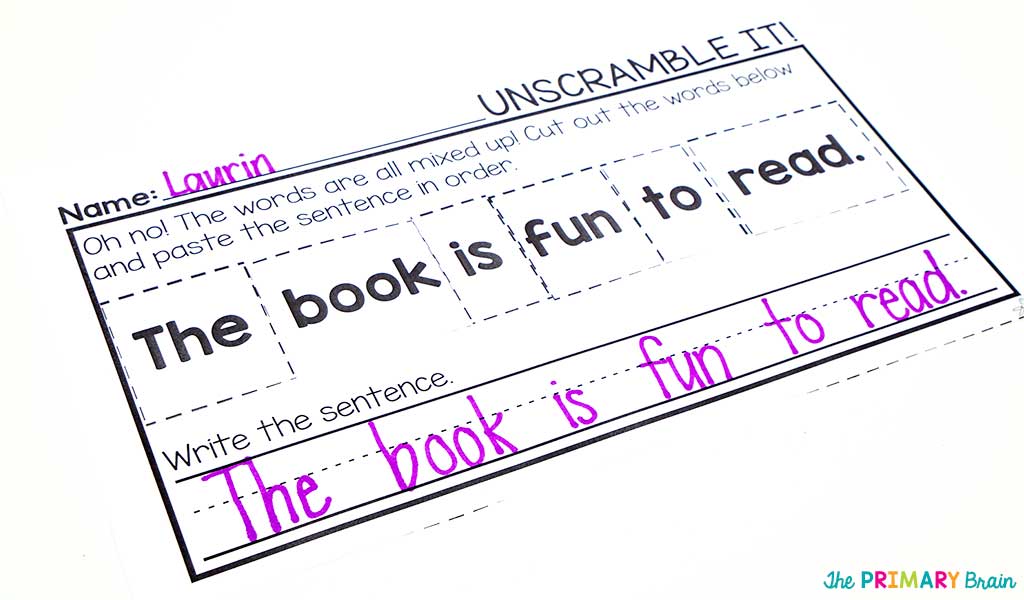 UNSCRAMBLE IT!
Name: Laurin
Oh no! The words are all mixed up! Cut out the words below
and paste the sentence in order.
The book is fun to read.
Write the sentence.
The book is fun to read.
The PRIMARY Brain